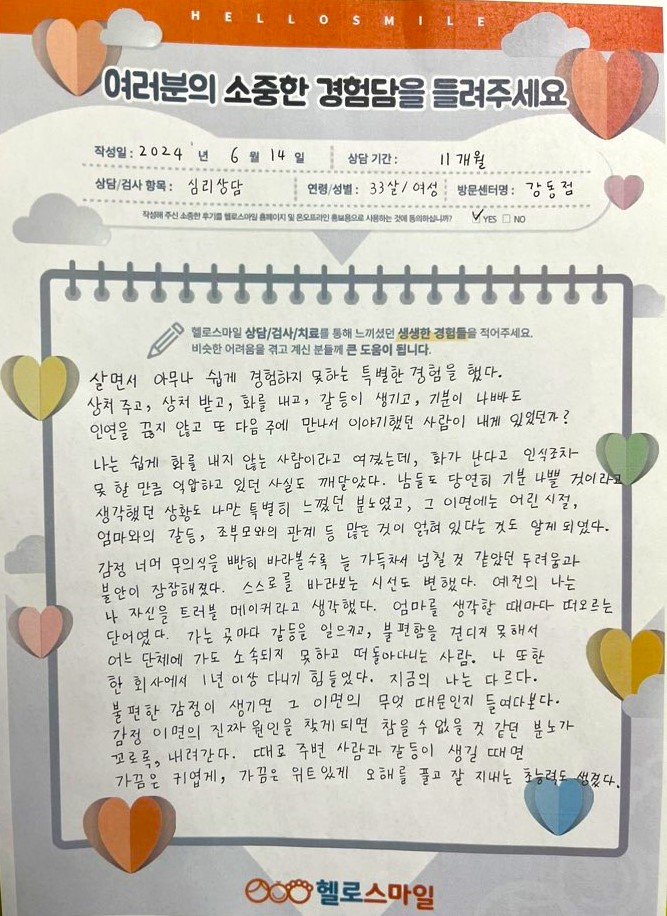 HELLOSMILE
여러분의 소중한 경험담을 들려주세요
작성일 : 2024 년 6 월 14 일 상담 기간 : 11개월
상담/검사 항목 : 심리상담 연령/성별 : 33살/여성 방문센터명 : 강동점
작성해 주신 소중한 후기를 헬로스마일 홈페이지 및 온오프라인 홍보용으로 사용하는 것에 동의하십니까? YES NO
헬로스마일 상담/검사/치료를 통해 느끼셨던 생생한 경험들을 적어주세요.
비슷한 어려움을 겪고 계신 분들께 큰 도움이 됩니다.
살면서 아무나 쉽게 경험하지 못하는 특별한 경험을 했다.
상처 주고, 상처 받고, 화를 내고, 갈등이 생기고, 기분이 나빠도
인연을 끊지 않고 또 다음 주에 만나서 이야기했던 사람이 내게 있었던가?
나는 쉽게 화를 내지 않는 사람이라고 여겼는데, 화가 난다고 인식조차
못 할 만큼 억압하고 있던 사실도 깨달았다. 남들도 당연히 기분 나쁠 것이라고
생각했던 상황도 나만 특별히 느꼈던 분노였고, 그 이면에는 어린 시절,
엄마와의 갈등, 조부모와의 관계 등 많은 것이 얽혀 있다는 것도 알게 되었다.
감정 너머 무의식을 빤히 바라볼수록 늘 가득차서 넘칠 것 같았던 두려움과
불안이 잠잠해졌다. 스스로를 바라보는 시선도 변했다. 예전의 나는
나 자신을 트러블 메이커라고 생각했다. 엄마를 생각할 때마다 떠오르는
단어였다. 가는 곳마다 갈등을 일으키고, 불편함을 견디지 못해서
어느 단체에 가도 소속되지 못하고 떠돌아다니는 사람. 나 또한
한 회사에서 1년 이상 다니기 힘들었다. 지금의 나는 다르다.
불편한 감정이 생기면 그 이면의 무엇 때문인지 들여다본다.
감정 이면의 진짜 원인을 찾게 되면 참을 수 없을 것 같던 분노가
꼬로록, 내려간다. 때로 주변 사람과 갈등이 생길 때면
가끔은 귀엽게, 가끔은 위트있게 오해를 풀고 잘 지내는 초능력도 생겼다.
헬로스마일